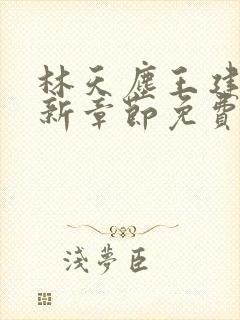 林天塵王建
新章節免費
淺夢臣